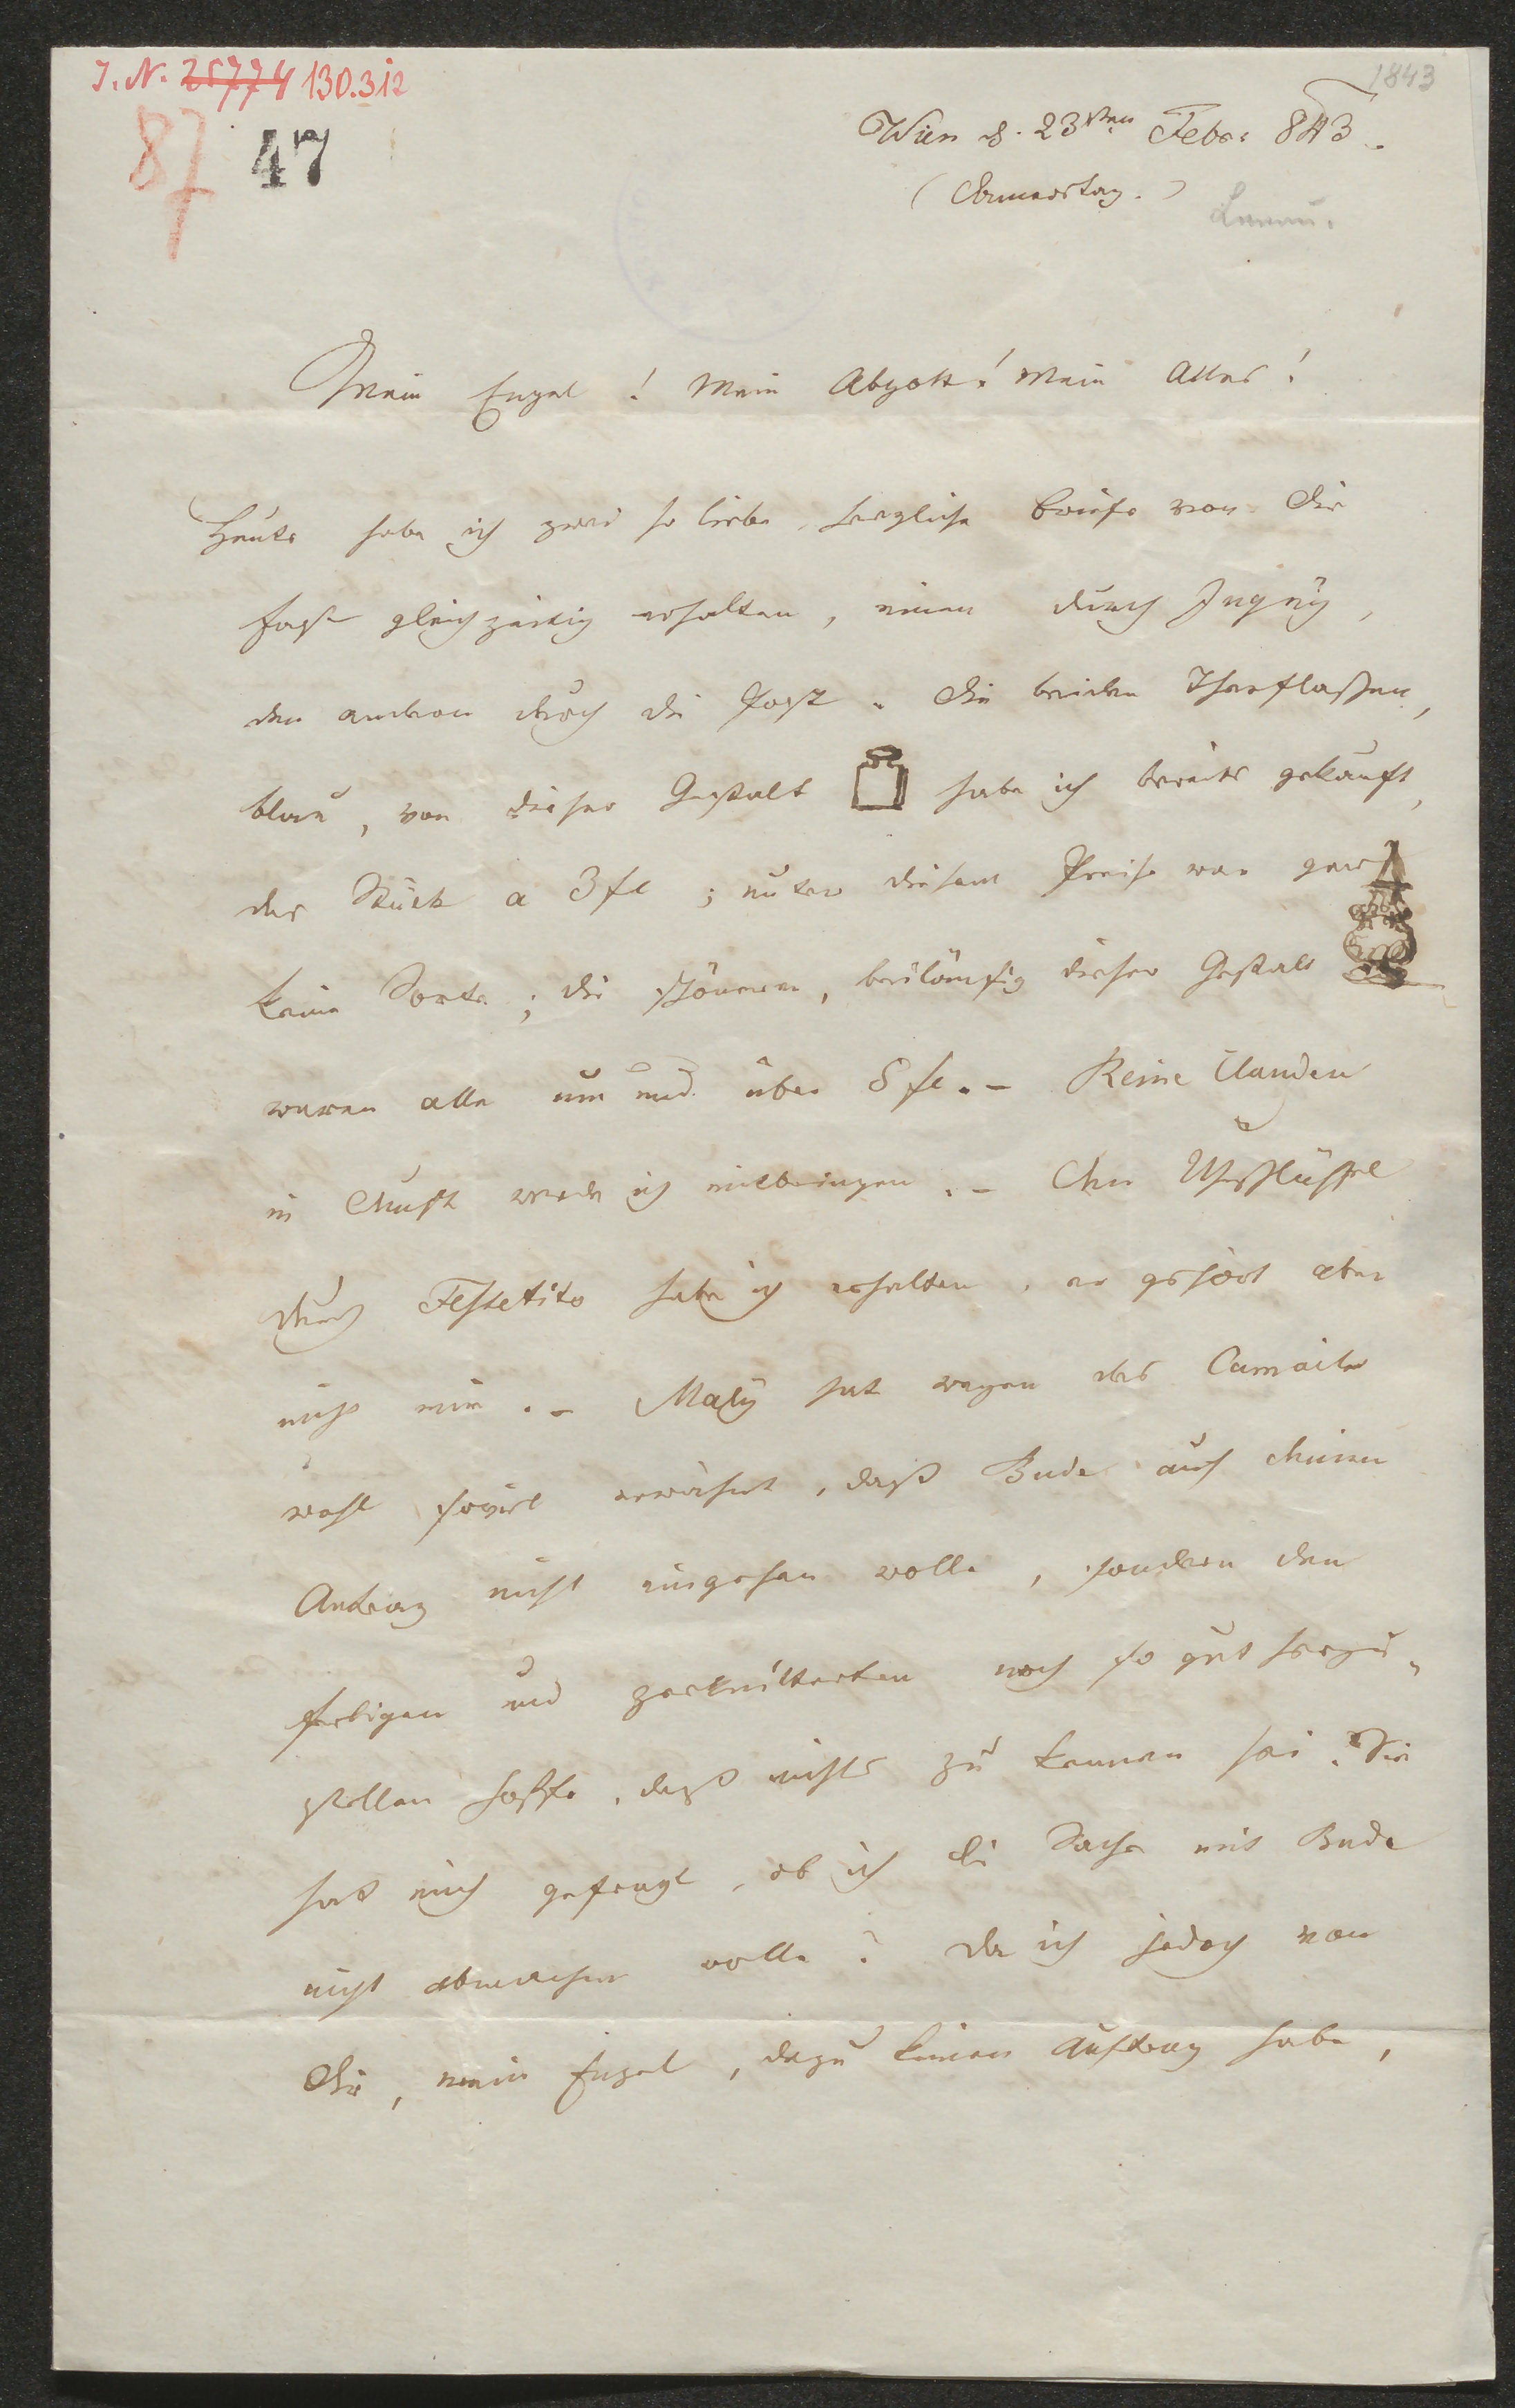 J. N. 25774 130.312
1843
87 47
Wien d. 23sten Febr: 843.
(Donnerstag.)
Mein Engel! Mein Abgott! Mein Alles!
Heute habe ich zwei so liebe, herzliche Briefe von Dir
fast gleichzeitig erhalten, einen durch
den andern durch die Post. Die beiden Theeflaschen,
blau, von dieser Gestalt habe ich bereits gekauft,
das Stück a 3 fl; unter diesem Preise war gar
keine Sorte; die schöneren, beiläufig dieser Gestalt
waren alle um und über 8 fl. – Reine Clauden
in Dunst werde ich mitbringen. – Den Uhrschlüssel
durch Festetits habe ich erhalten, er gehört aber
nicht mir. – Maly hat wegen des Camails
wohl soviel erwähnt, daß Bude auf Deinen
Antrag nicht eingehen wolle, sondern den
farbigen und zerknitterten noch so gut herzu-
stellen hoffe, daß nichts zu kennen sei. Sie
hat mich gefragt, ob ich die Sache mit Bude
nicht abmachen wolle? Da ich jedoch von
Dir, mein Engel, dazu keinen Auftrag habe,